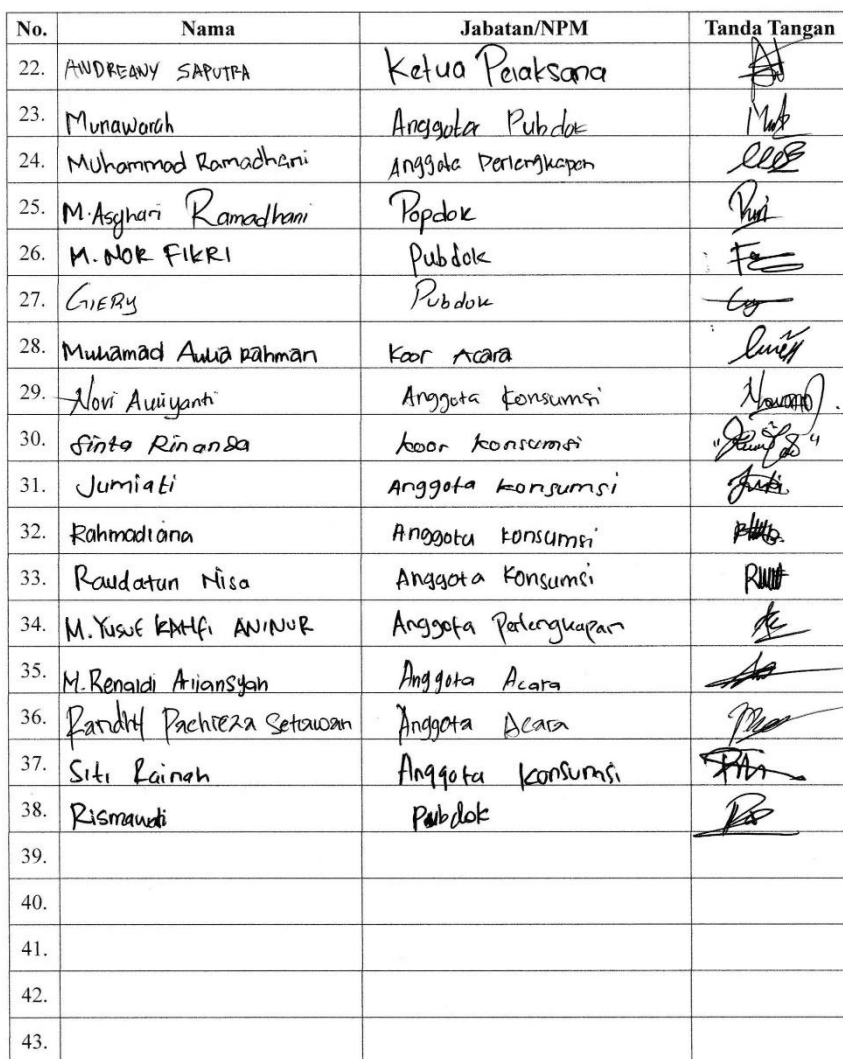 No. Nama Jabatan/NPM Tanda Tangan
22. ANDREANY SAPUTRA Ketua Pelaksana
23. Munawarah Anggota Pubdok
24. Muhammad Ramadhani Anggota Perlengkapan
25. M. Asghari Ramadhani Popdok
26. M. NOR FIKRI Pubdok
27. GIERY Pubdok
28. Muhamad Aulia Rahman Koor Acara
29. Novi Auliyanti Anggota Konsumsi
30. Sinta Rinanda koor konsumsi
31. Jumiati Anggota konsumsi
32. Rahmadiana Anggota konsumsi
33. Raudatun Nisa Anggota Konsumsi
34. M. Yusuf KAHFi ANINUR Anggota Perlengkapan
35. M. Renaldi Arjiansyah Anggota Acara
36. Setiawan Anggota Acara
37. Siti Rainah Anggota Konsumsi
38. Rismawati Pubdok
39.
40.
41.
42.
43.